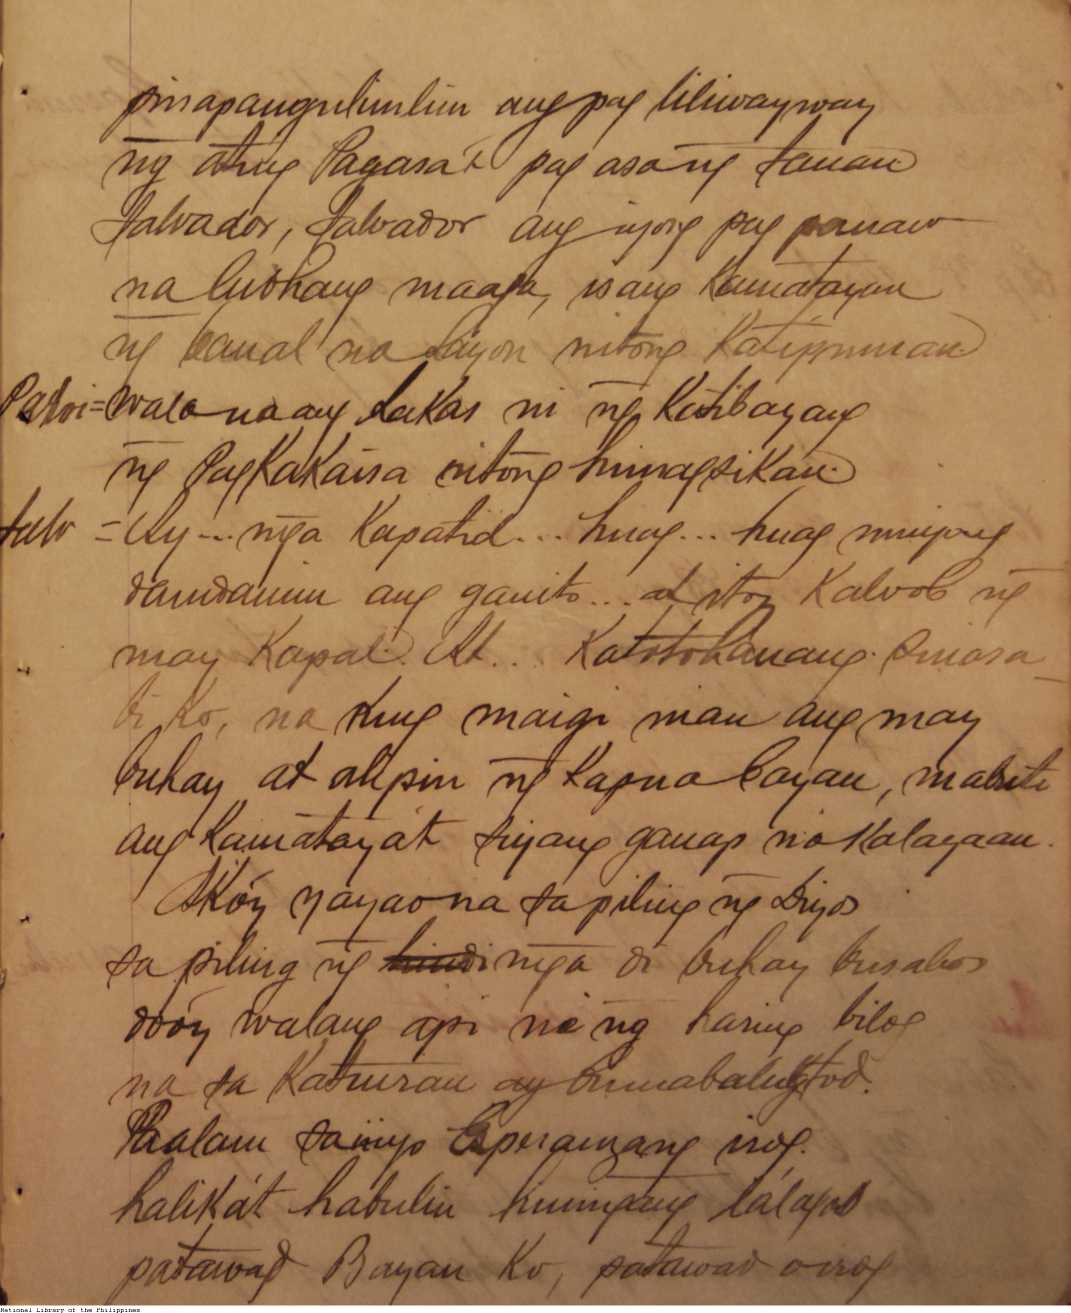 pinapangulimlim ang pag liliwayway
n̄g ating Pagasa't pag asa n̄g tanan
Salvador, Salvador ang iyong pag panaw
na lubhang maaga, isang kamatayan
n̄g banal na layon nitong Katipunan
Patri= wala na ang lakas ni n̄g Katibayang
n̄g Pagkakaisa nitong himagsikan.
Salv = Ay... mga Kapatid... huag... huag ninyong
damdamin ang ganito... at itoy Kaloob n̄g
may Kapal. At... Katotohanang sinasa
bi ko, na kung maigi man ang may
buhay at alipin n̄g kapua bayan, mabuti
ang kamatay at siyang ganap na kalayaan.
Akóy yayao na sa piling n̄g Diyos
sa piling n̄g hindi mga di buhay busabos
doóy walang api na ng haring bilog
na sa Katuiran ay bumabaluktod.
Paalam sa iniyo Esperanzang irog.
halika't habulin hiningang lálagot
patawad Bayan Ko, patawad o irog
National Library of the Philippines